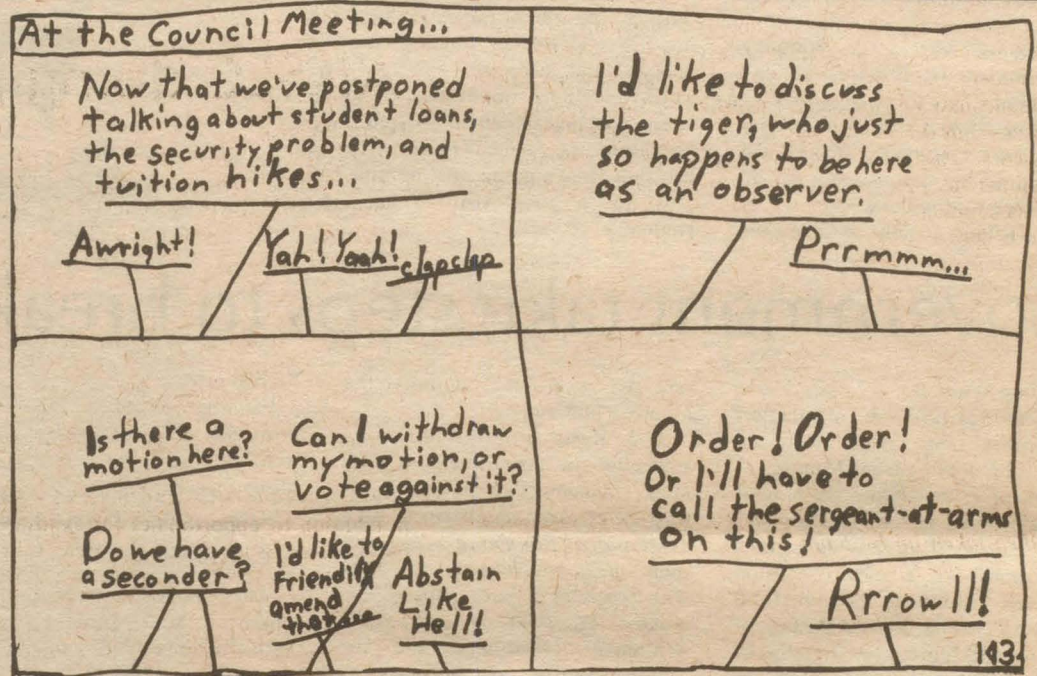 At the Council Meeting...
Now that we've postponed
talking about student loans,
the security problem, and
tuition hikes...
Awright!
Yah! Yaah!
clap clap
I'd like to discuss
the tiger, who just
so happens to be here
as an observer.
Prrmmm...
Is there a
motion here?
Can I withdraw
my motion, or
vote against it?
Do we have
a seconder?
I'd like to
Friendily
amend
that...
Abstain
Like
Hell!
Order! Order!
Or I'll have to
call the sergeant-at-arms
on this!
Rrrowll!
143